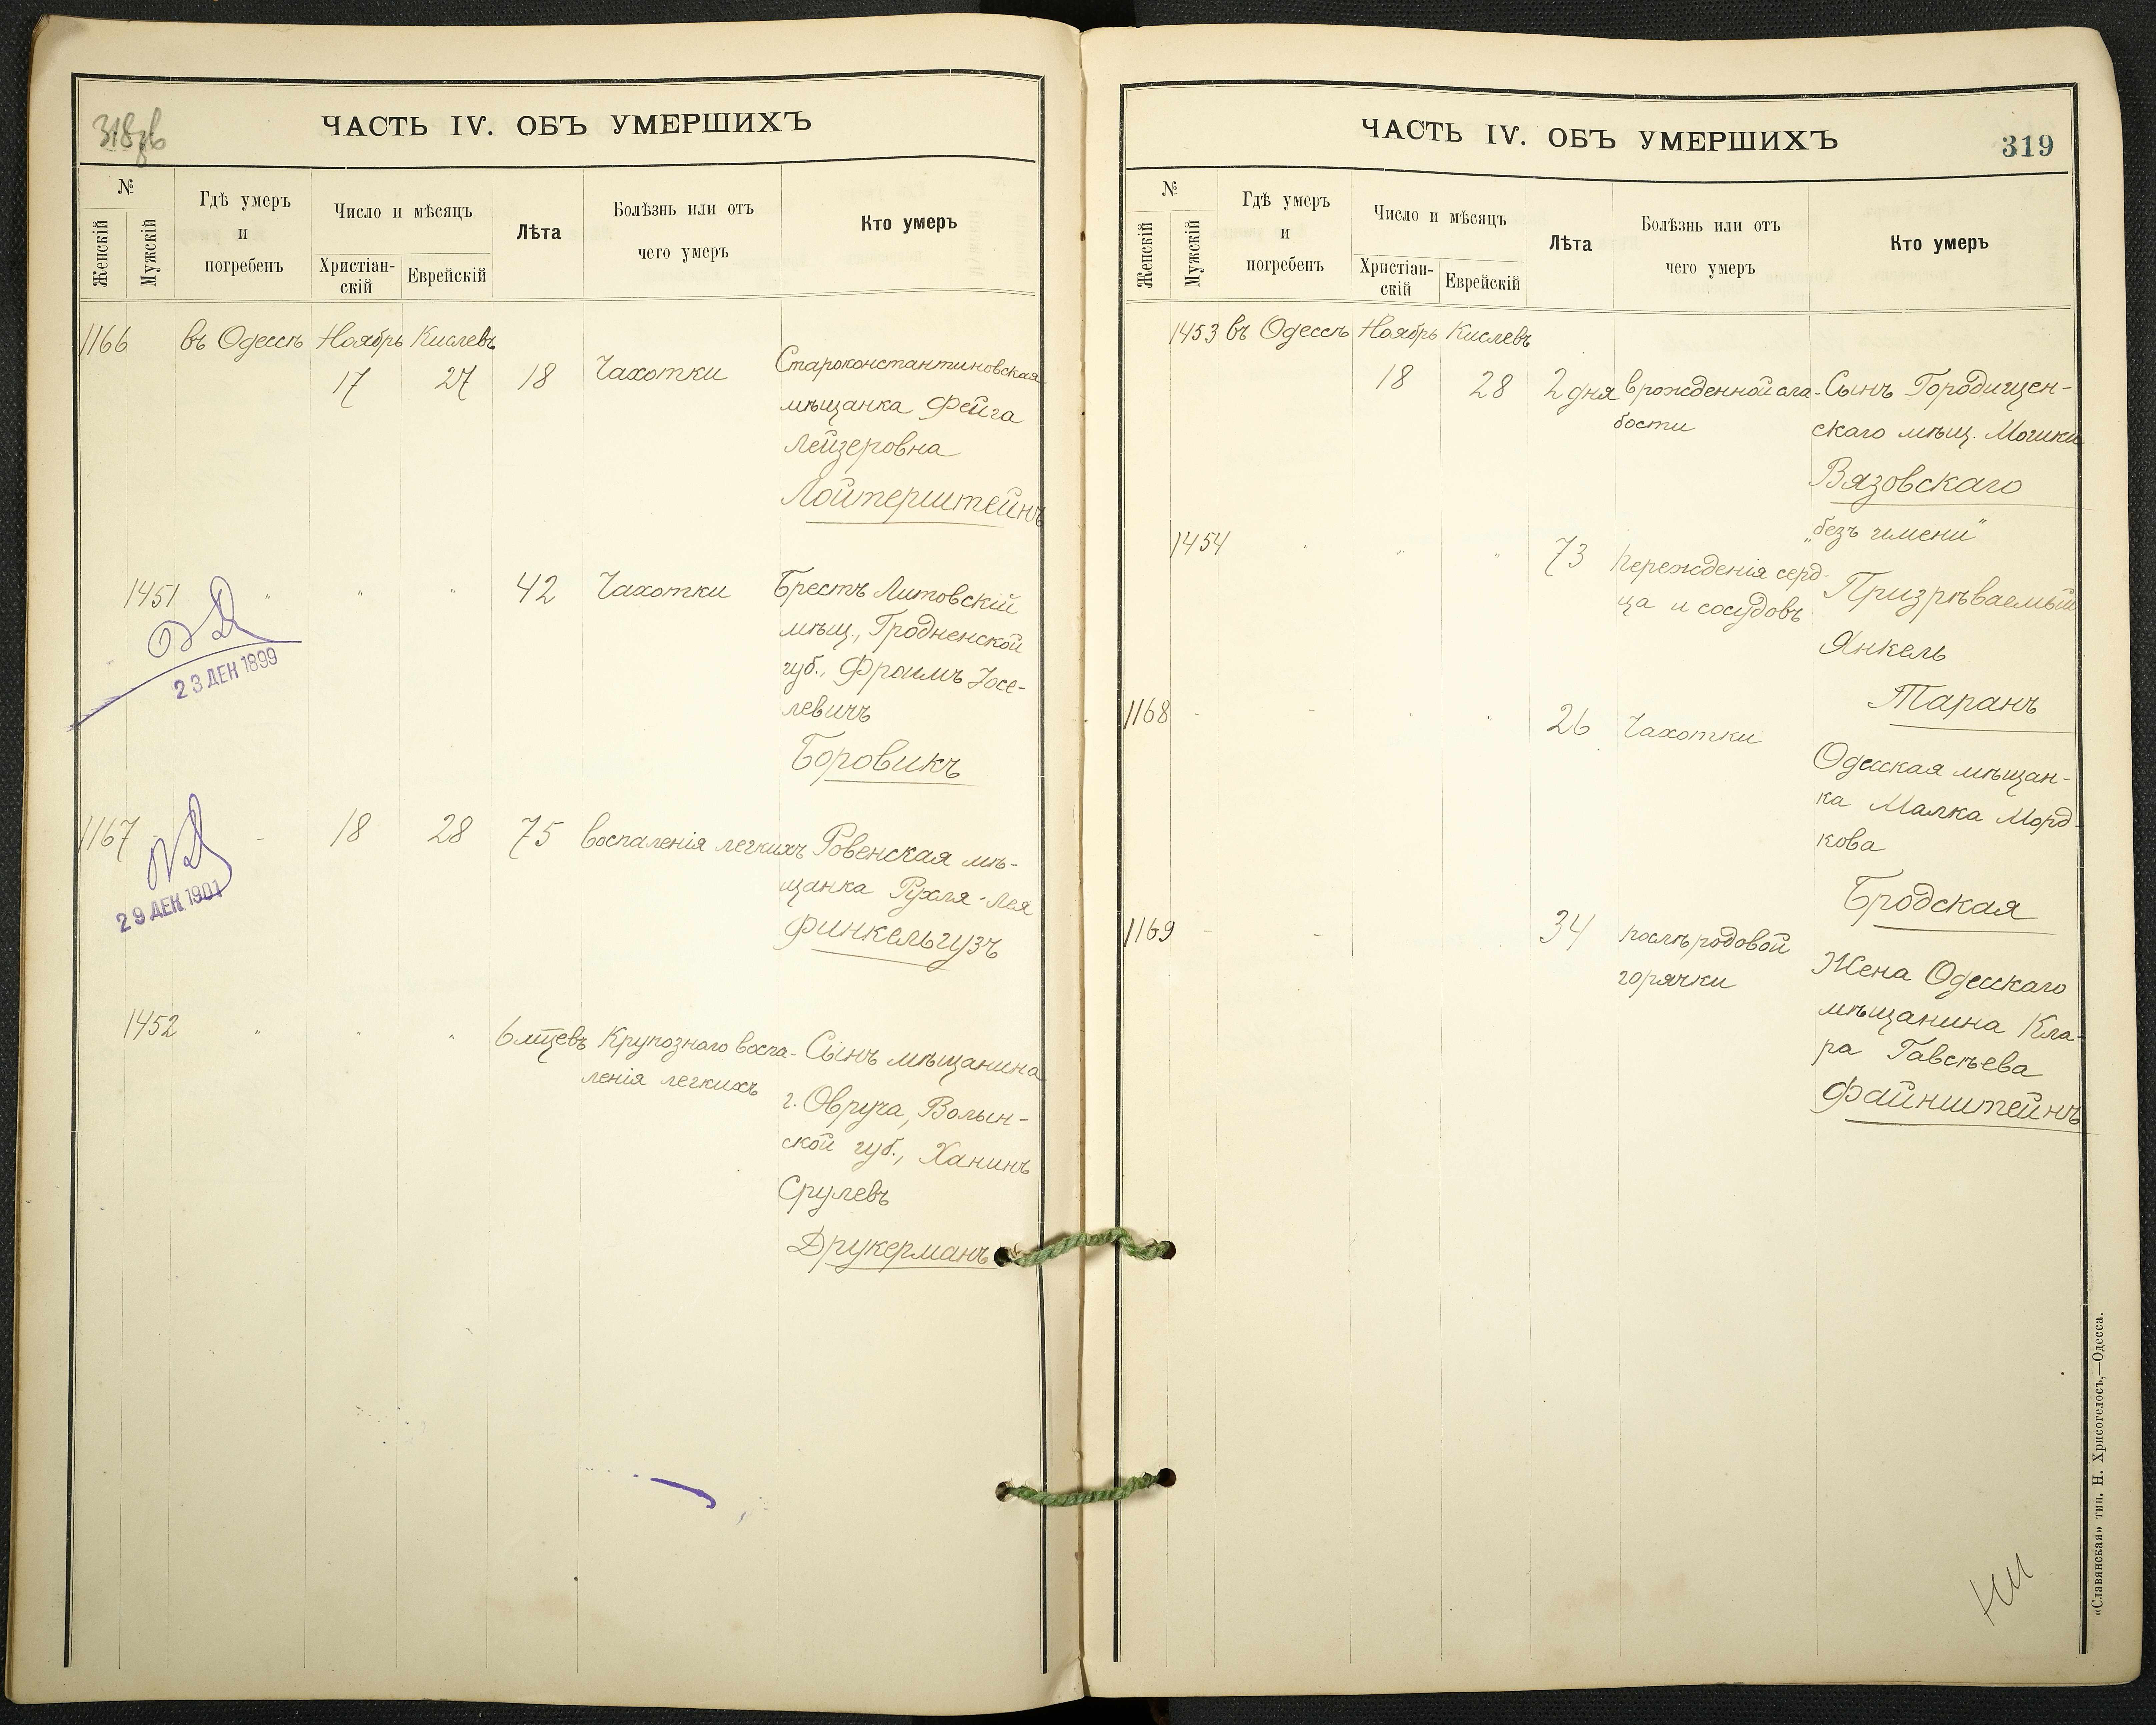 318об
ЧАСТЬ IV. ОБЪ УМЕРШИХЪ
№
Женскій
Мужскій
Гдѣ умеръ
и
погребенъ
Число и мѣсяцъ
Христіан-
скій
Еврейскій
Лѣта
Болѣзнь или отъ
чего умеръ
Кто умеръ
1166 въ Одессѣ Ноябрь Кислевъ
17 27 18 Чахотки Староконстантиновская
мѣщанка Фейга
Лейзеровна
Лойтерштейнъ
1451 " " " 42 Чахотки Брестъ Литовскій
мѣщ., Гродненской
губ., Фроимъ Іосе-
левичъ
Боровикъ
23 ДЕН 1899
1167 - - 18 28 75 Воспаленія легкихъ Ровенская мѣ-
щанка Рухля-Лея
Финкельгузъ
29 ДЕН 1901
1452 " " " 6 мцевъ Крупознаго воспа- Сынъ мѣщанина
ленія легкихъ г. Овруча, Волын-
ской губ., Ханинъ
Срулевъ
Друкерманъ
ЧАСТЬ IV. ОБЪ УМЕРШИХЪ
319
№
Женскій
Мужскій
Гдѣ умеръ
и
погребенъ
Число и мѣсяцъ
Христіан-
скій
Еврейскій
Лѣта
Болѣзнь или отъ
чего умеръ
Кто умеръ
1453 въ Одессѣ Ноябрь Кислевъ
18 28 2 дня врожденной сла- Сынъ Городищен-
бости скаго мѣщ. Мошки
Вязовскаго
"безъ имени"
1454 " " " 73 Пережденія серд- Призрѣваемый
ца и сосудовъ
Янкель
Таранъ
1168 - - " " 26 Чахотки
Одесская мѣщан-
ка Малка Морд-
кова
Бродская
1169 - - 34 послѣродовой
горячки
Жена Одесскаго
мѣщанина Кла-
ра Гавсѣева
Файнштейнъ
«Славянская» тип. Н. Хрисогелосъ,—Одесса.